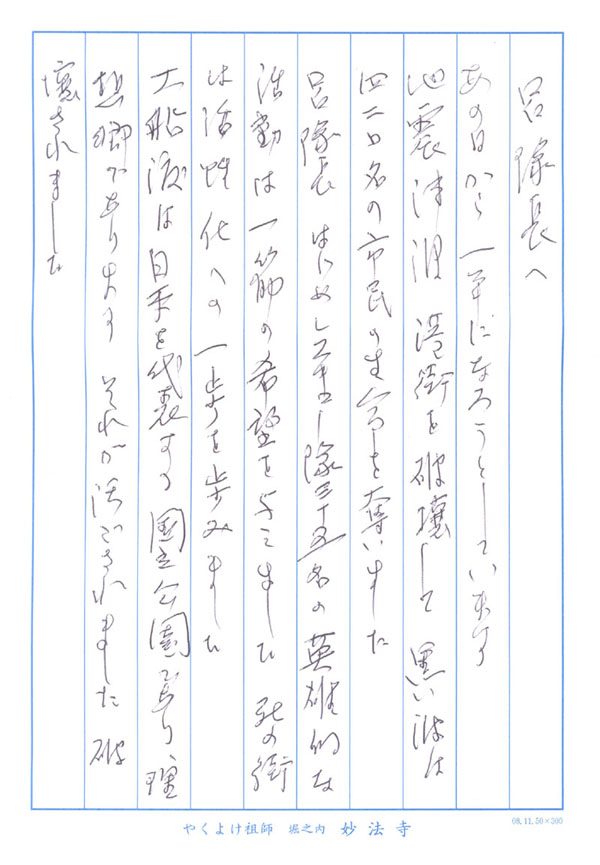 呂隊長へ
あの日から一年になろうとしています
地震津浪 港街を破壊して 黒い波は
四二〇名の市民の生命を奪いました
呂隊長はじめレスキュー隊三十五名の英雄的な
活動は一筋の希望を与えました 死の街
は活性化への一歩を歩みました
大船渡は日本を代表する国立公園であり、理
想郷であります それが活ごされました 破
壊されました
やくよけ祖師 堀之内 妙法寺
08.11.50×500